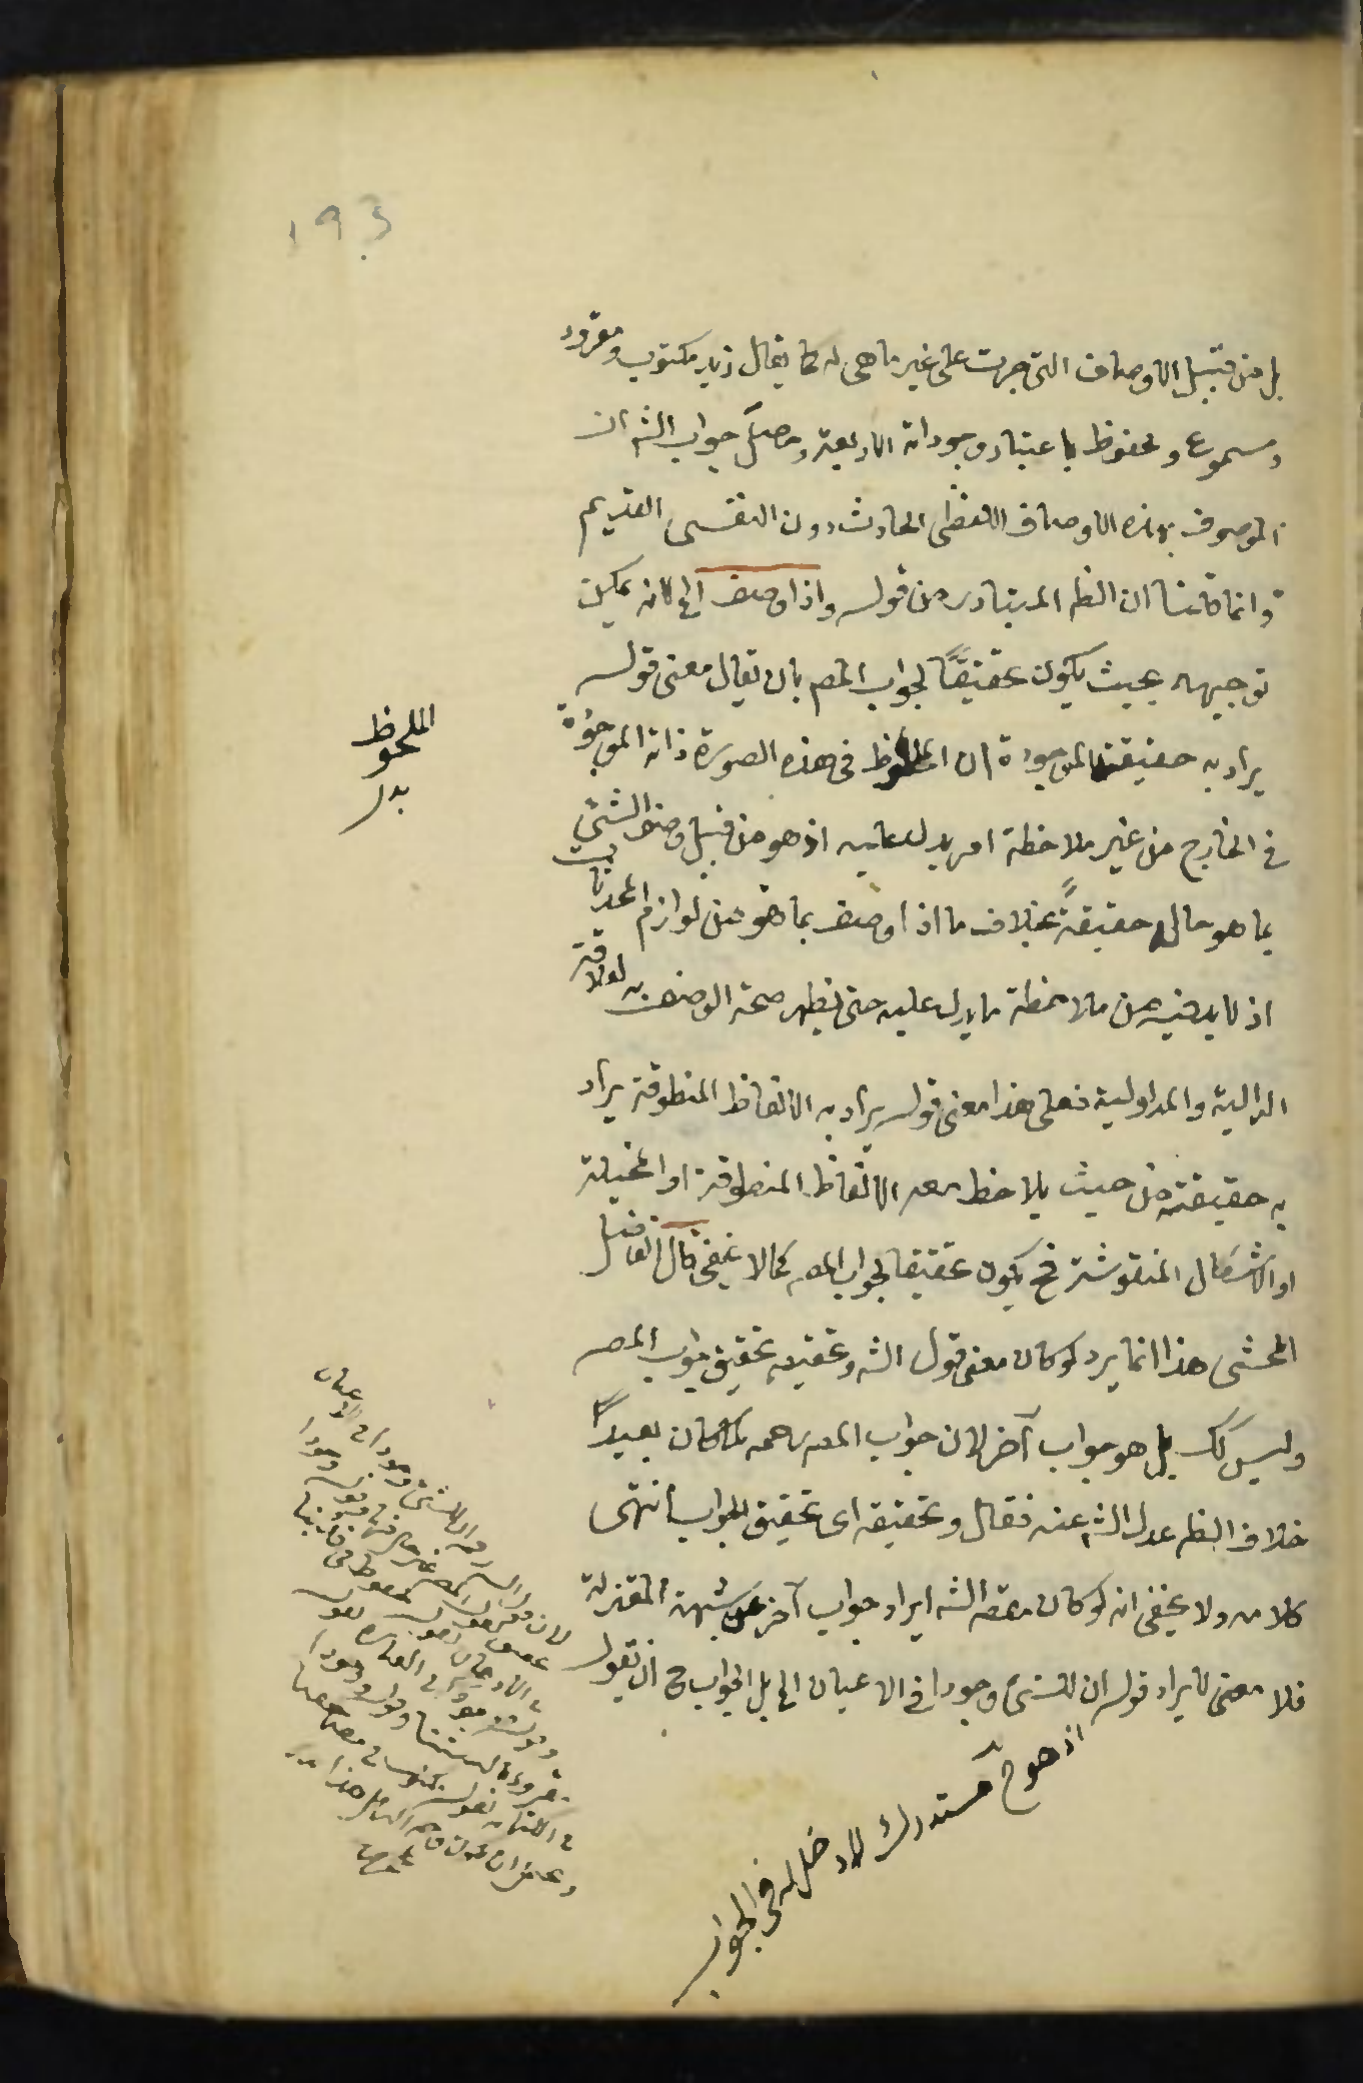 193
بل من قبيل الاوصاف التى جرت على غير ما هى له كما يقال زيد مكتوب ومقروء
ومسموع ومحفوظ باعتبار وجوداته الاربعة وحاصل جواب الشه ان
الموصوف بهذه الاوصاف اللفظى الحادث دون النفسى القديم
وانما قلنا ان الظم المتبادر من قوله واذا وصف الخ لانه يمكن
توجيهه بحيث يكون تحقيقًا لجواب المص بان يقال معنى قوله
يراد به حقيقته الموجودة ان الملحوظ فى هذه الصورة ذاته الموجودة
فى الخارج من غير ملاحظة امر يدل عليه اذ هو من قبيل وصف الشئ
بما هو حاله حقيقةً بخلاف ما اذا وصف بما هو من لوازم المحدثات
اذ لا بد فيه من ملاحظة ما يدل عليه حتى يظهر صحة الوصف به لعلاقة
الدالية والمدلولية فعلى هذا معنى قوله يراد به الالفاظ المنطوقة يراد
به حقيقته من حيث يلاحظ معه الالفاظ المنطوقة او المخيلة
او الاشكال المنقوشة فح يكون تحقيقا لجواب المص كما لا يخفى قال الفاضل
المحشى هذا انما يرد لو كان معنى قول الشه وتحقيقه تحقيق جواب المص
وليس كك بل هو جواب آخر لان جواب المص رحمه لما كان بعيدًا
خلاف الظم عدل الشه عنه فقال وتحقيقه اى تحقيق الجواب انتهى
كلامه ولا يخفى انه لو كان مقصد الشه ايراد جواب آخر عن شبهة المعتزلة
فلا معنى لايراد قوله ان للشئ وجودا فى الاعيان الخ بل الجواب ح ان يقول
اذ هو ح مستدرك لا دخل له فى الجواب
الملحوظ
بدل